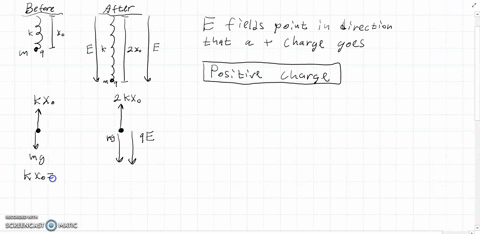 Before
After
k
x₀
m
q
E
k
2x₀
E
m
q
E fields point in direction
that a + charge goes
Positive charge
kx₀
mg
2kx₀
mg
qE
kx₀=
RECORDED WITH
SCREENCAST MATIC